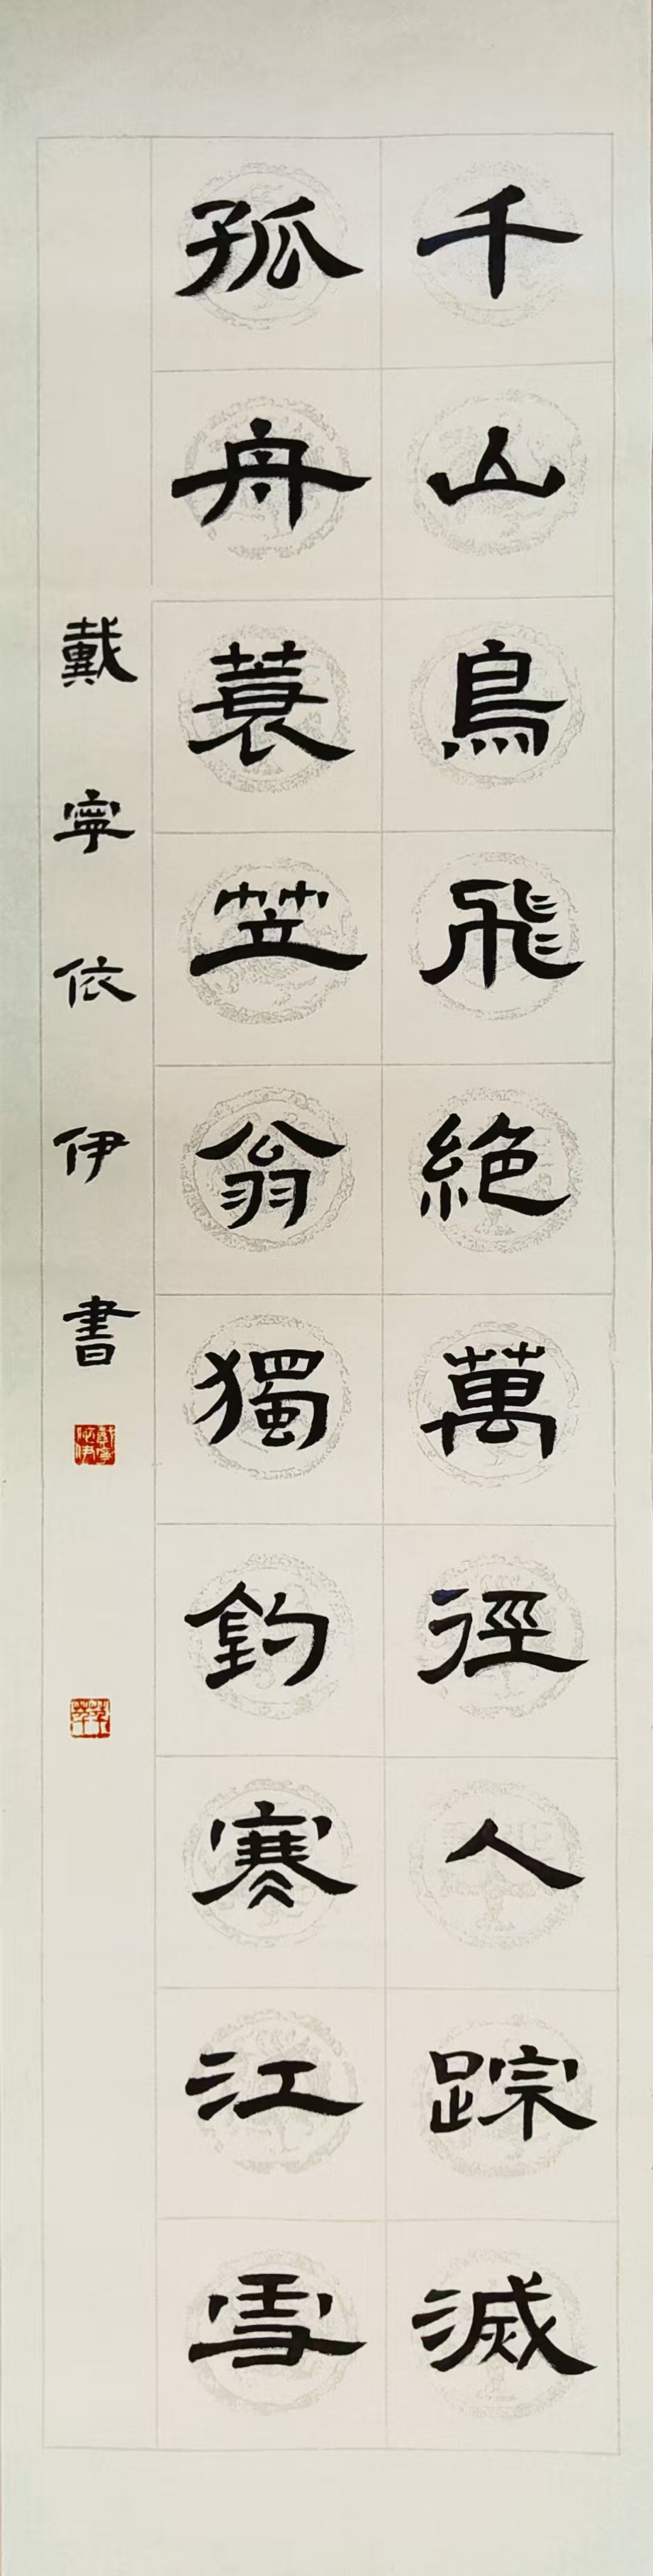 千山鳥飛絕萬徑人蹤滅
孤舟蓑笠翁獨釣寒江雪
戴寧依伊書